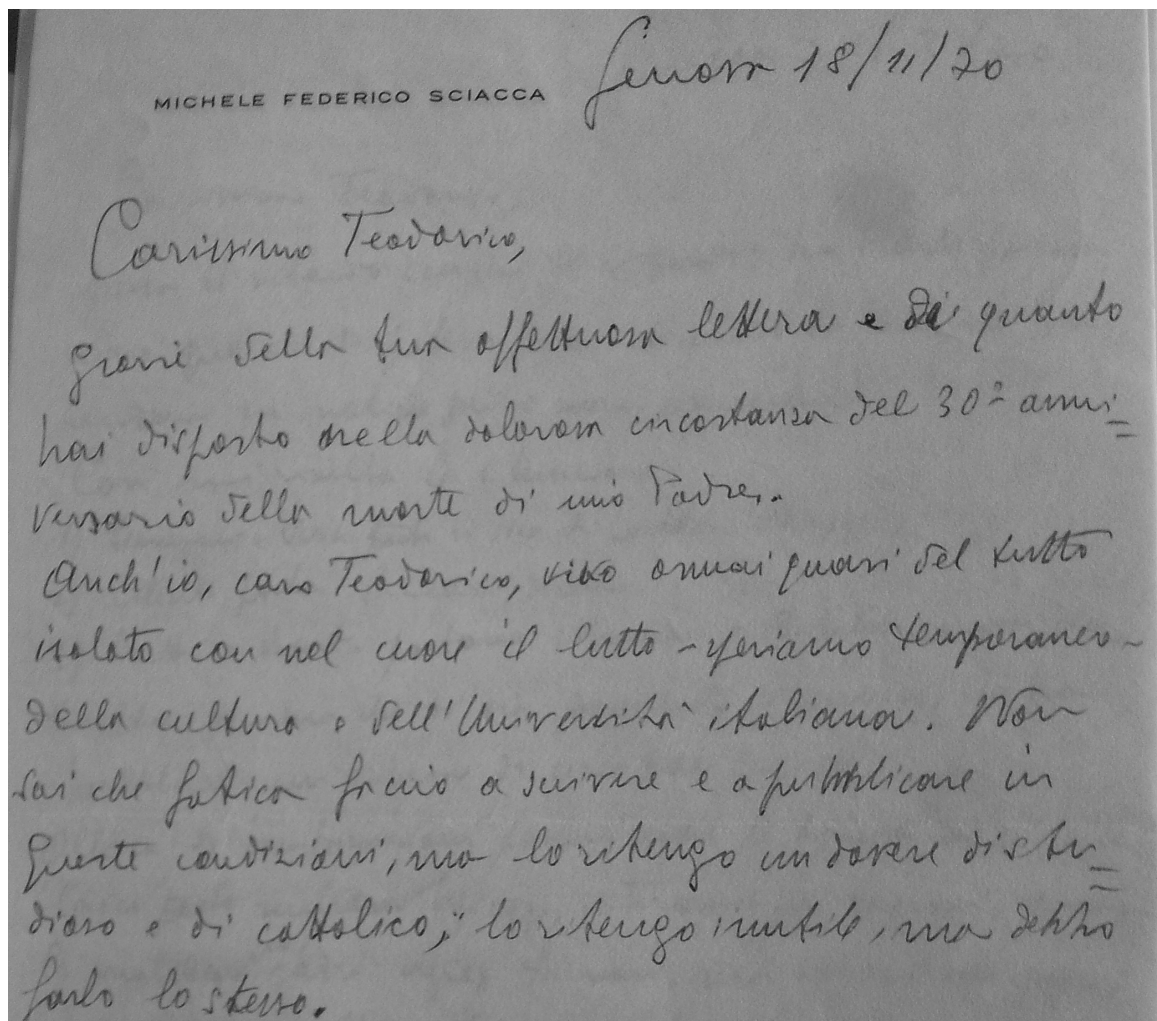 MICHELE FEDERICO SCIACCA
Genova 18/11/70
Carissimo Teodorico,
grazie della tua affettuosa lettera e di quanto
hai disposto nella dolorosa circostanza del 30º anni=
versario della morte di mio Padre.
Anch'io, caro Teodorico, vivo ormai quasi del tutto
isolato con nel cuore il lutto - speriamo temporaneo -
della cultura e dell'Università italiana. Non
sai che fatica faccio a scrivere e a pubblicare in
queste condizioni, ma lo ritengo un dovere di stu=
dioso e di cattolico; lo ritengo inutile, ma debbo
farlo lo stesso.